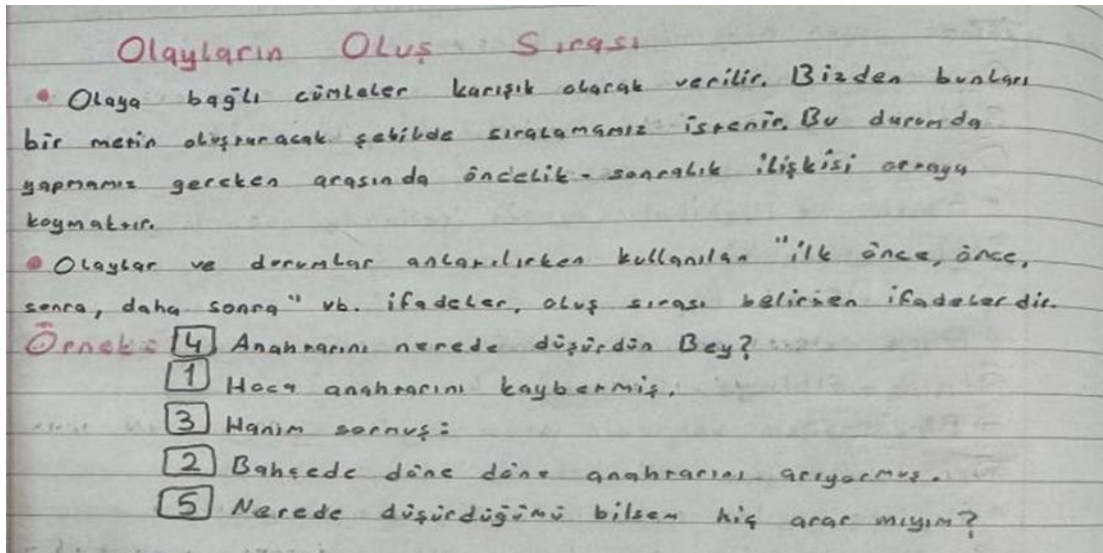 Olayların Oluş Sırası
• Olaya bağlı cümleler karışık olarak verilir. Bizden bunları
bir metin oluşturacak şekilde sıralamamız istenir. Bu durumda
yapmamız gereken arasında öncelik - sonralık ilişkisi ortaya
koymaktır.
• Olaylar ve durumlar anlatılırken kullanılan "ilk önce, önce,
sonra, daha sonra" vb. ifadeler, oluş sırası belirten ifadelerdir.
Örnek: 4 Anahtarını nerede düşürdün Bey?
1 Hoca anahtarını kaybetmiş.
3 Hanım sormuş:
2 Bahçede döne döne anahtarını arıyormuş.
5 Nerede düşürdüğümü bilsem hiç arar mıyım?